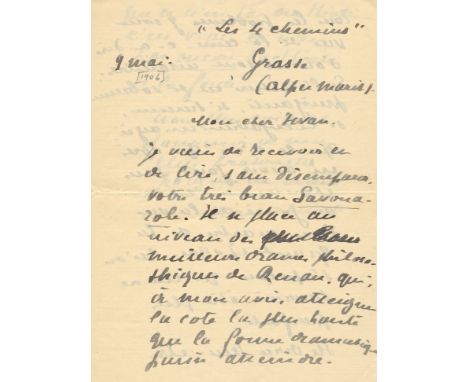 "Les 4 chemins"
9 mai. Grasse
[1906] (alpes marit.).
Mon cher Ivan.
je viens de recevoir et
de lire, sans désempara,
votre très beau Savona-
role. Il se place au
niveau des
meilleurs drames philoso-
phiques de Renan, qui,
à mon avis, atteignent
la cote la plus haute
que la forme dramatique
puisse atteindre.